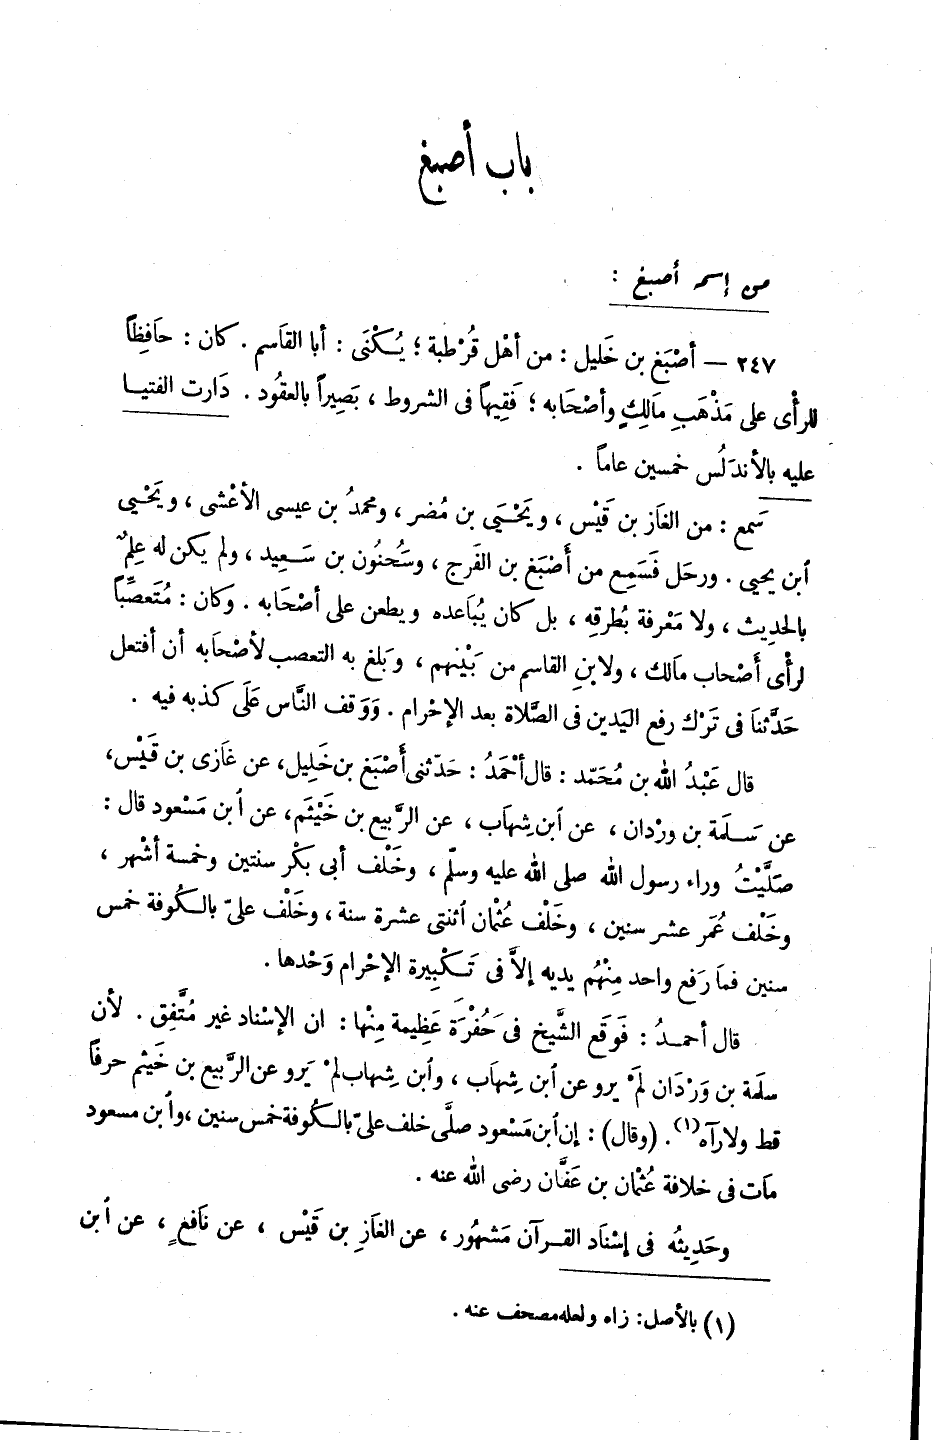 باب أصبغ
من إسمه أصبغ :
٢٤٧ — أصْبَغ بن خَليل : من أهْل قُرْطبة ؛ يُكْنَى : أبا القاَسم . كان : حاَفِظاً
للرأْى على مَذْهَبِ مَالِكٍ وأصْحَابه ؛ فَقِيهاً فى الشروط ، بَصِيراً بالعقُود . دَارت الفتيا
عليه بالأندَلُس خمسين عاماً .
سَمع : من الغَاز بن قَيْس ، ويَحْيَى بن مُضر ، ومحمدُ بن عيسى الأعْشى ، ويَحْيي
ٱبن يحيى . ورحَل فَسَمِع من أَصْبَغ بن الفَرج ، وسَُحنُون بن سَعِيد ، ولم يكن له عِلمٌ
بالحدِيث ، ولا مَعْرفة بُطرقِه ، بل كان يُبَاعده ويطعن على أصْحَابه . وكان : مُتَعصِّباً
لرأْى أَصْحاب مالك ، ولابنِ القاسم من بَيْنهم ، وَبلغ به التعصب لأصْحَابه أن أفتعل
حَدَّثناَ فى تَرْك رفع اليَدين فى الصَّلاة بعد الإحْرام . وَوَقف النَّاس عَلَى كذبه فيه .
قال عَبْدُ الله بن مُحَمّد : قال أحْمَدُ : حَدّثنى أَصْبَغ بن خَلِيل، عن غَازى بن قَيْس،
عن سَلَمة بن ورْدان ، عن ٱبن شِهاَب ، عن الرَّبيع بن خَيْثَم، عن ٱبن مَسْعود قال :
صَلَّيْتُ وراء رسول الله صلى الله عليه وسلّم ، وخَلْف أبى بكْر سنتين وخمسة أشْهر ،
وخَلْف عُمَر عشر سنين ، وخَلْف عُثْمان ٱثنتى عشرة سنة ، وخَلْف علىّ بالكُوفة خمس
سنين فماَ رَفع واحد مِنْهُم يديه إلاَّ فى تَكْبِيرة الإحْرام وَحْدها .
قال أحمدُ : فَوَقع الشَّيخ فى حُفْرَة عَظِيمة مِنْها : ان الإسْناد غير مُتَّفِق . لأن
سلمة بن وَرْدَان لَمْ يرو عن ٱبن شِهَاب ، وٱبن شِهاب لمْ يَرو عن الرَّبيع بن خَيثم حرفاً
قط ولا رآه(١) . (وقال) : إن ٱبن مَسْعود صلَّى خلف علىّ بالكُوفة خمس سنين ، وٱبن مسعود
مَات فى خلافة عُثْمان بن عَفَّان رضى الله عنه .
وحَدِيثُه فى إسْنَاد القرآن مَشهُور ، عن الغَازِ بن قَيْس ، عن نَافعٍ ، عن ٱبن
(١) بالأصل: زاه ولعله مصحف عنه .